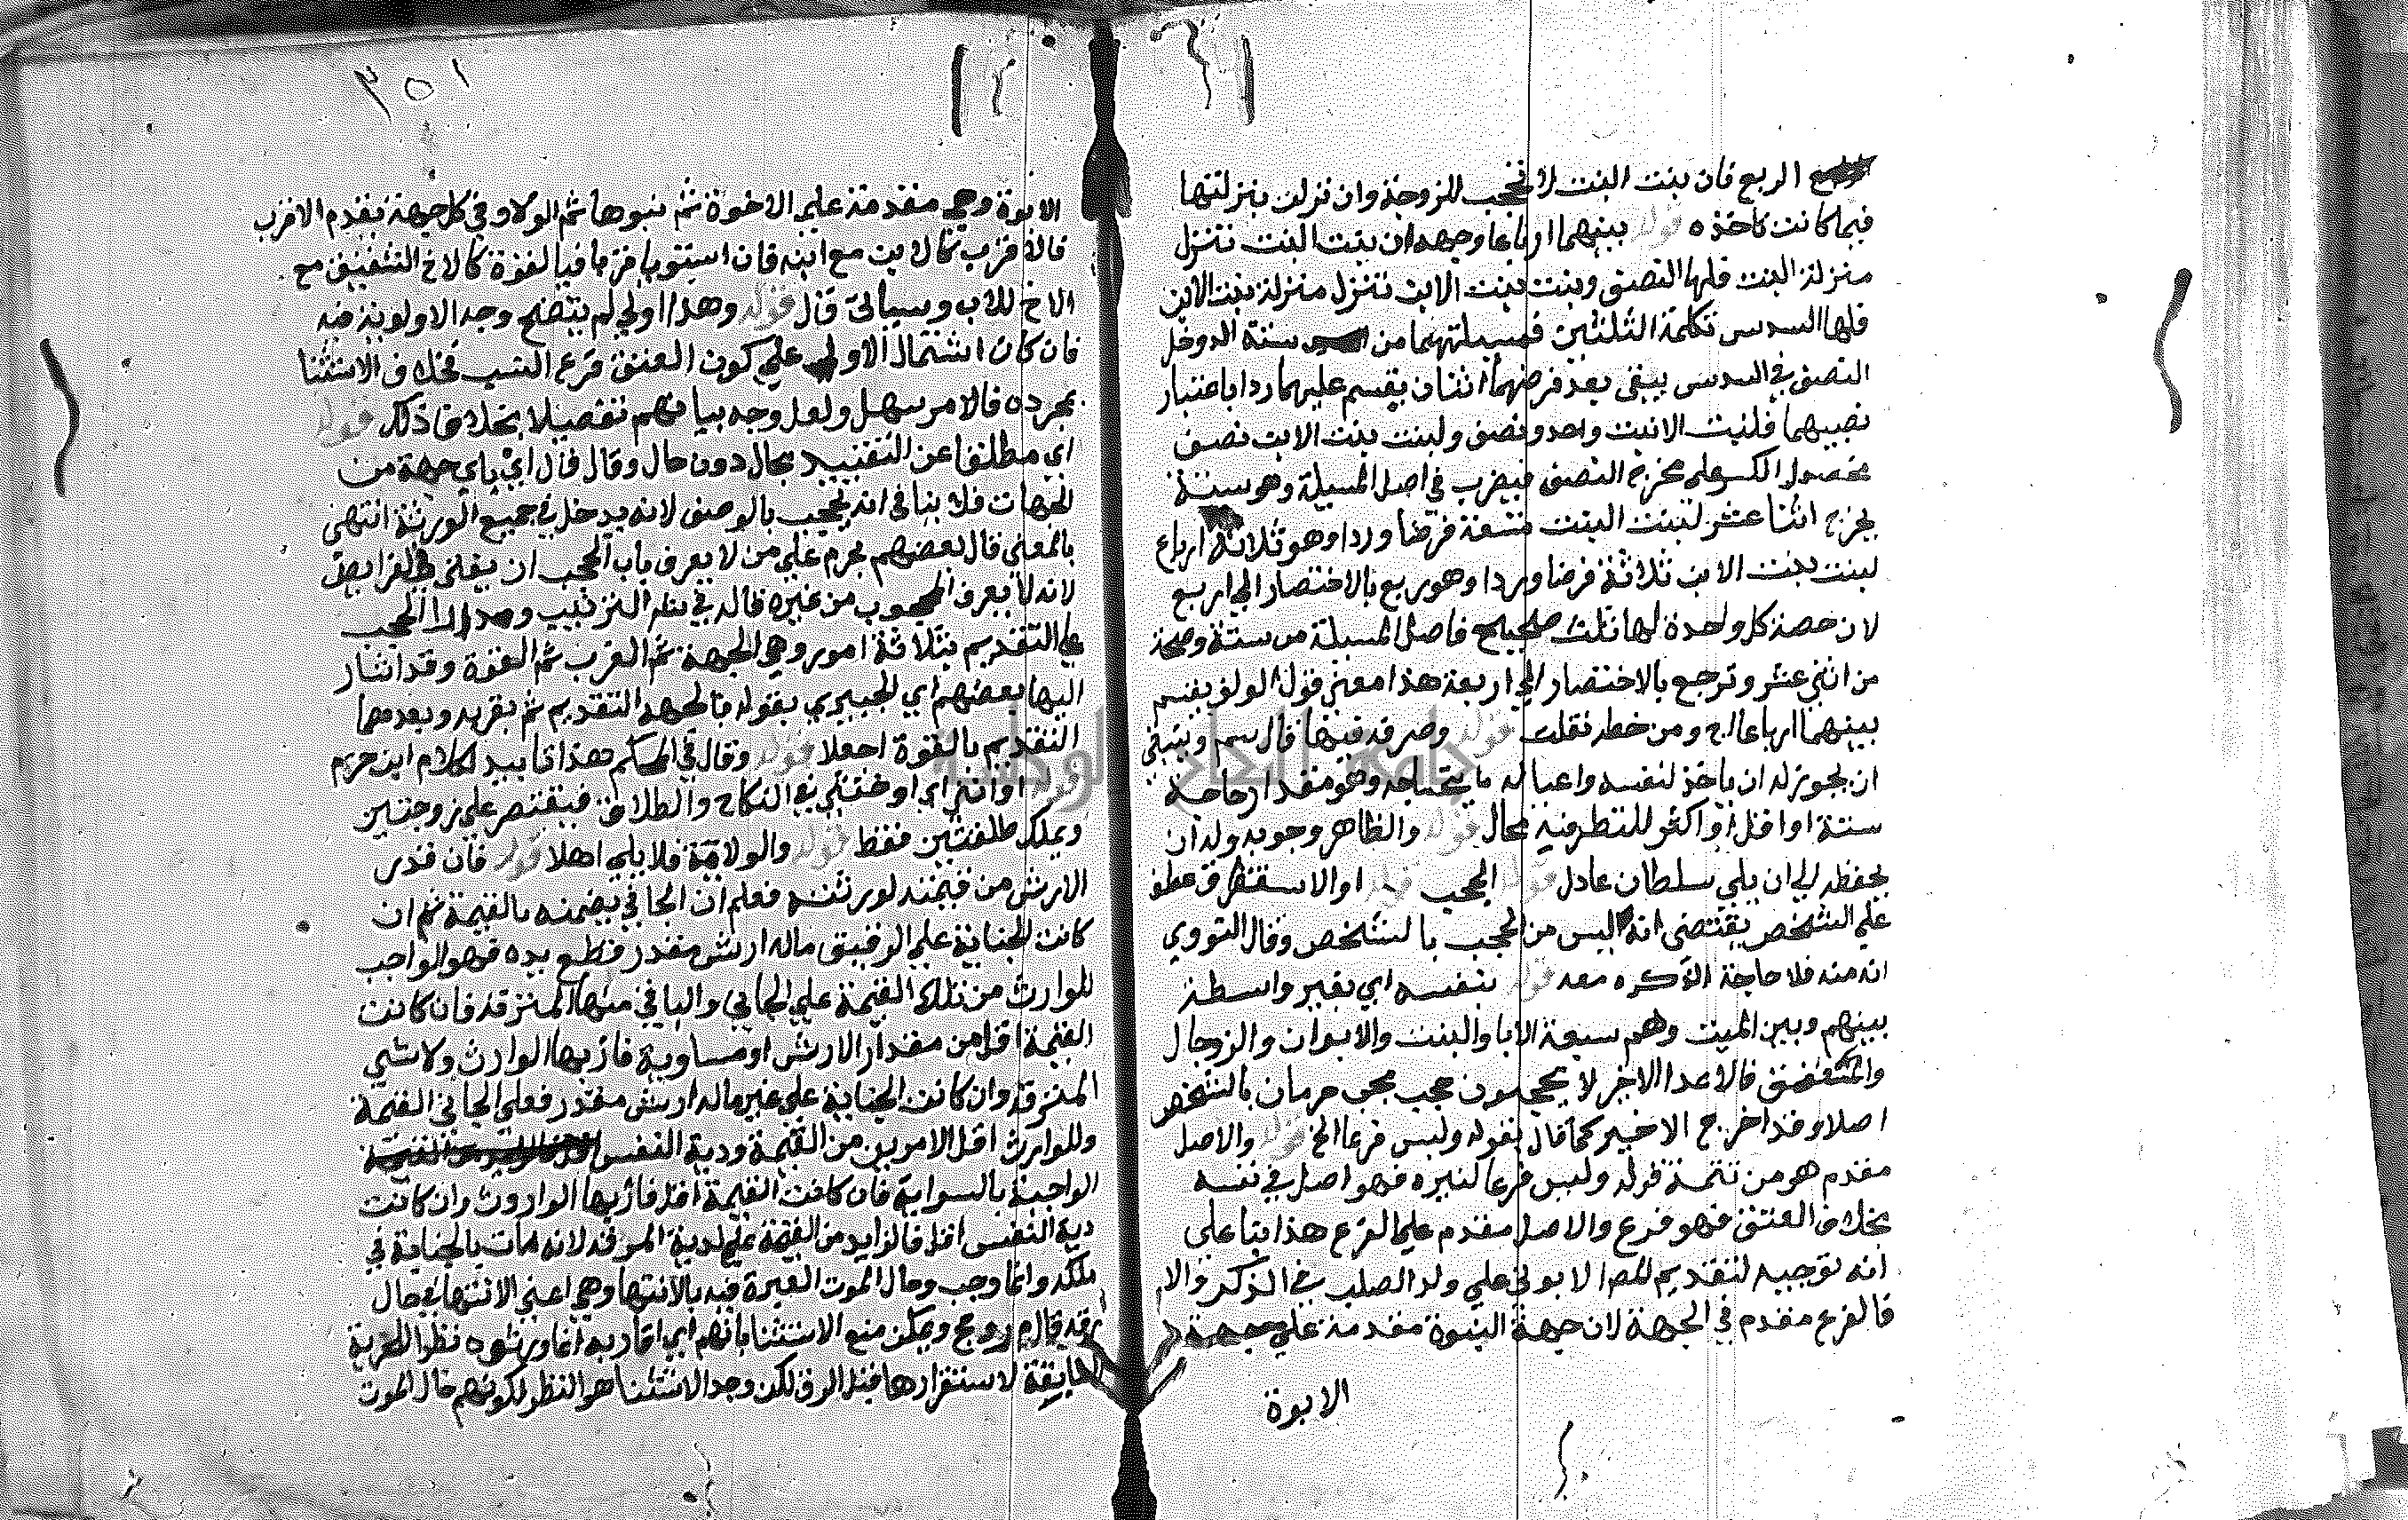 الربع فان بنت البنت لا تحجب الزوجة وان نزلت بنزلتها
فيما كانت تاخذه قوله بينهما ارباعا وجهه ان بنت البنت تنزل
منزلة البنت فلها النصف وبنت بنت الابن تنزل منزلة بنت الابن
فلها السدس تكلمة الثلثين فمسيلتهما من ستة الدوخل
النصف في السدس يبقى بعد فرضهما اثنان يقسم عليهما ردا باعتبار
نصيبهما فلبنت البنت واحد ونصف ولبنت بنت الابن نصف
محصول الكسر على مخرج النصف فيضرب في اصل المسيلة وهو ستة
يخرج اثنا عشر لبنت البنت تسعة فرضا وردا وهو ثلاثة ارباع
لبنت بنت الابن ثلاثة فرضا وردا وهو ربع بالاختصار الي اربع
لان حصة كل واحدة لها ثلث صحيح فاصل المسيلة من ستة وصحة
من اثني عشر وترجع بالاختصار الي اربعة هذا معني قول المولف يقسم
بينهما ارباعا الخ ومن خطه نقلت قوله وصرفه فيها قال سم وينبغي
ان يجوز له ان ياخذ لنفسه وعياله ما يحتاجه وهو مقدار حاجة
ستة او اقل او اكثر للنظر فيه مجال قوله والظاهر وجوبه وله ان
يحفظه الي ان يلي سلطان عادل قوله الحجب قوله او الاستغراق عطف
علي الشخص يقتضي انه ليس من الحجب بالشخص وقال النووي
انه منه فلا حاجة لذكره معه قوله بنفسه اي بغير واسطة
بينهم وبين الميت وهم سبعة الابا والبنت والابوان والزوجان
والمعتق فالاعدا الاخير لا يحجبون حجب حرمان بالشخص
اصلا وقد اخرج الاخير كما قال بقوله وليس فرعا الخ قوله والاصل
مقدم هو من تتمة قوله وليس فرعا لغيره فهو اصل في نفسه
بخلاف المعتق فهو فرع والاصل مقدم علي الفرع هذا بنا على
انه توجيه لتقديم الابوني علي ولد الصلب في الذكر والا
فالفرع مقدم في الجهة لان جهة البنوة مقدمة علي جهة
الابوة
١٥٣
الابوة وهي مقدمة علي الاخوة ثم بنوها ثم الولا وفي كل جهة يقدم الاقرب
فالاقرب كالابن مع ابنه فان استويا قربا فبالقوة كالاخ الشقيق مع
الاخ للاب وسياتي قال قوله وهذا اولي لم يتضح وجه الاولوية فيه
فان كان اشتمال الاولي علي كون المعتق فرع النسب فخلاف الاستثنا
بمجرده فالامر سهل ولعل وجه بيانهم تفصيلا بخلاف ذلك قوله
اي مطلقا عن التقييد بحال دون حال وقال ق ل اي باي جهة من
الجهات فلا ينافي انه يحجب بالوصف لانه يدخل في جميع الورثة انتهى
بالمعني قال بعضهم يحرم علي من لا يعرف باب الحجب ان يفتي في الفرايض
لانه لا يعرف المحجوب من غيره قاله في الترتيب ومدار الحجب
علي التقديم بثلاثة امور وهي الجهة ثم القرب ثم القوة وقد اشار
اليها بعضهم اي الجعبري بقوله فبالجهة التقديم ثم بقربه وبعدهما
التقديم بالقوة اجعلا قوله وقال في المحكم هذا تاييد لكلام ابن حزم
قوله او انثي اي او خنثي في النكاح والطلاق فيقتصر علي زوجتين
ويملك طلقتين فقط قوله والولاية فلا يلي اهلا قوله فان قدر
الارش من قيمته لورثته فعلم ان الجاني يضمنه بالقيمة ثم ان
كانت الجناية علي الرقيق ماله ارش مقدر فقطع يده فهو الواجب
للوارث من تلك القيمة علي الجاني والباقي منها لمسترقه فان كانت
القيمة اقل من مقدار الارش او مساوية فازبها الوارث ولا شي
لمسترقه وان كانت الجناية علي غير ماله ارش مقدر فعلي الجاني القيمة
وللوارث اقل الامرين من القيمة ودية النفس
الواجبة بالسراية فان كانت القيمة اقل فازبها الوارث وان كانت
دية النفس اقل فالزايد من القيمة علي الدية لمسترقه لانه مات بالجناية في
ملكه وانما وجب وحال الموت العبرة فيه بالانتها وهي اعني الانتها في حال
رقه قاله م ر وحج ويمكن منع الاستثنا بانهم اي اقاربه انما ورثوه نظرا للحرية
السابقة لاستقرارها قبل الرق لكن وجه الاستثنا هو النظر لكونهم حال الموت